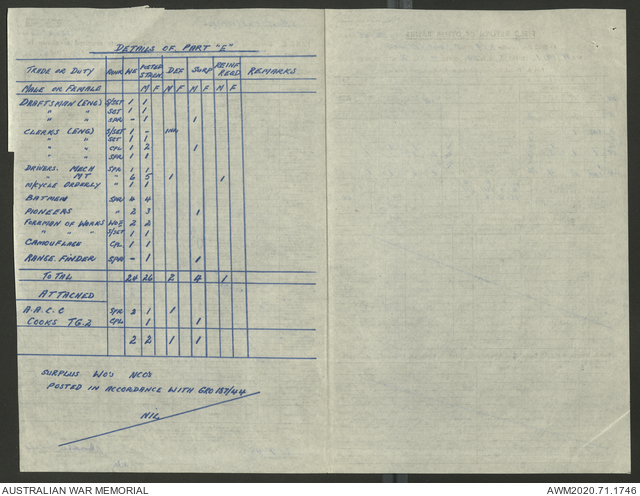 DETAILS OF PART "E"
TRADE OR DUTY RANK W/E POSTED STRGH. DEF SURP REINF REQD. REMARKS
MALE OR FEMALE M F M F M F M F
DRAFTSMAN (ENG) S/SGT 1 1
" " SGT 1 1
" " SPR - 1 1
CLERKS (ENG) S/SGT 1 -
" " SGT 1 1
" " CPL 1 2 1
" " SPR 1 1
DRIVERS. MECH SPR 1 1
" MT " 6 5 1 1
M/CYCLE ORDERLY " 1 1
BATMEN SPR 4 4
PIONEERS " 2 3 1
FOREMAN OF WORKS 2 2
" " " S/SGT 1 1
CAMOUFLAGE CPL 1 1
RANGE. FINDER SPR - 1 1
TOTAL 24 26 2 4 1
ATTACHED
A.A.C.C SPR 2 1 1
COOKS TG.2 CPL 1 1
2 2 1 1
SURPLUS WO'S NCO'S
POSTED IN ACCORDANCE WITH GRO 187/44
NIL
AUSTRALIAN WAR MEMORIAL AWM2020.71.1746